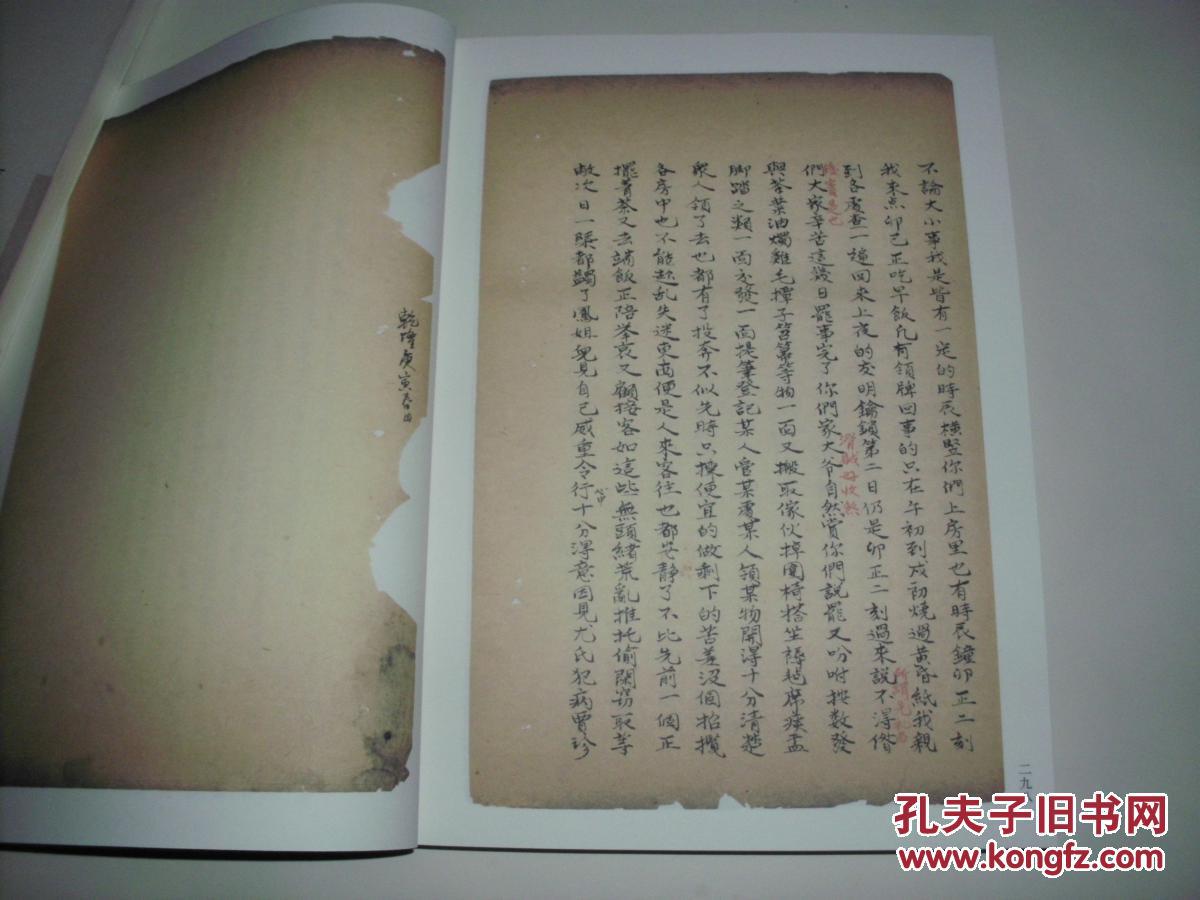 不論大小事我是皆有一定的時辰橫豎你們上房里也有時辰鐘卯正二刻
我來点卯巳正吃早飯凡有領牌回事的只在午初到戌初燒過黃昏紙我親
到各處查一遍回來上夜的交明鑰鎖第二日仍是卯正二刻過來說不得偺
們大家辛苦這幾日罷事完了你們家大爺自然賞你們說罷又吩咐按数發
滑賊好收煞
與茶葉油燭雞毛撢子笤箒等物一面又搬取傢伙掉圍椅搭坐褥毡席痰盂
脚踏之類一面交發一面提筆登記某人管某處某人領某物開得十分清楚
眾人領了去也都有了投奔不似先時只揀便宜的做剩下的苦差沒個招攬
各房中也不能趂乱失迷東西便是人來客往也都安静了不比先前一個正
擺着茶又去端飯正陪举哀又顧接客如這些無頭緒荒亂推托偷閑窃取等
獘次日一槩都蠲了鳳姐兒見自己威重令行心中十分得意因見尤氏犯病賈珍
乾隆庚寅春日
二九
孔夫子旧书网
www.kongfz.com